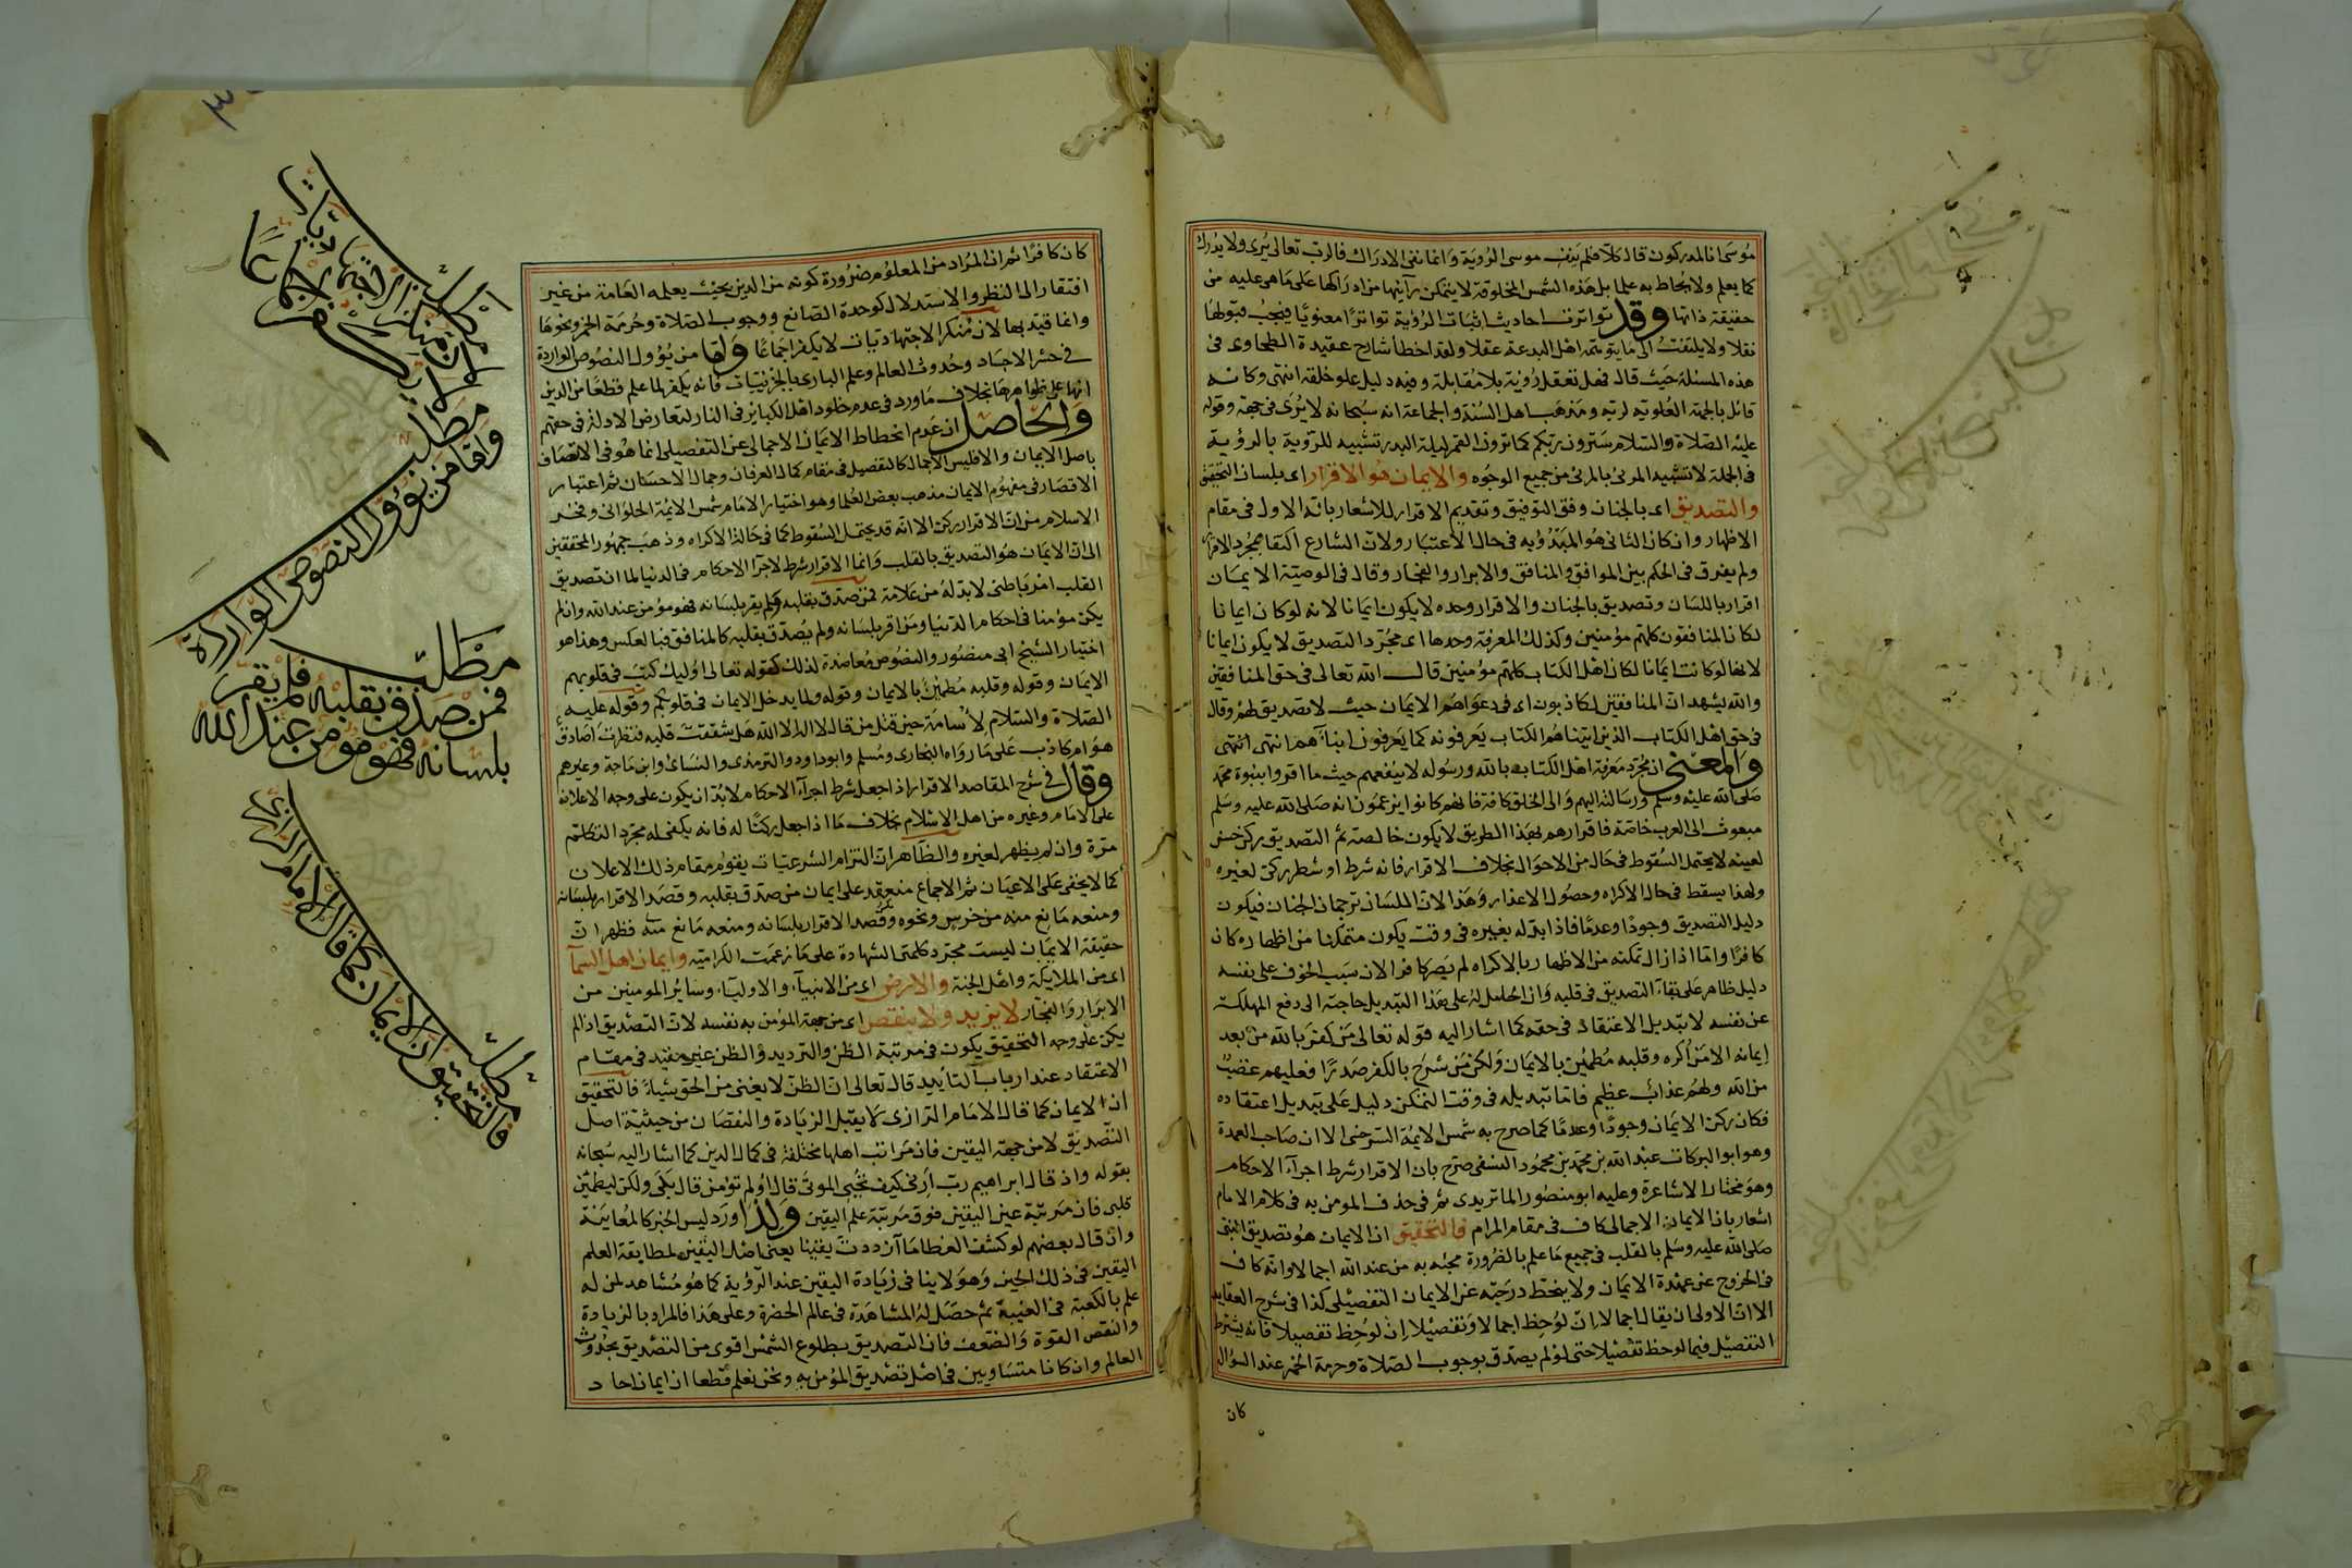 موسى انا لمدركون قال كلا فلم ينف موسى الرؤية وانما نفى الادراك فالرب تعالى يرى ولا يدرك
كما يعلم ولا يحاط به علما بل هذه الشمس المخلوقة لا يتمكن رآئيها من ادراكها على ما هى عليه من
حقيقة ذاتها وقد تواترت احاديث اثبات الرؤية تواترا معنويا فيجب قبولها
نقلا ولا يلتفت الى ما يتوهمه اهل البدعة عقلا ولقد اخطأ شارح عقيدة الطحاوى فى
هذه المسئلة حيث قال فهل تعقل رؤية بلا مقابلة وفيه دليل علو خلقه انتهى وكانه
قائل بالجهة العلوية لربه ومذهب اهل السنة والجماعة انه سبحانه لا يرى فى جهة وقوله
عليه الصلاة والسلام سترون ربكم كما ترون القمر ليلة البدر تشبيه للرؤية بالرؤية
فى الجملة لا تشبيه المرئى بالمرئى من جميع الوجوه والايمان هو الاقرار اى بلسان التحقيق
والتصديق اى بالجنان وفق التوفيق وتقديم الاقرار للاشعار بانه الاول فى مقام
الاظهار وان كان الثانى هو المبدؤ به فى حال الاعتبار ولان الشارع اكتفا بمجرد الاقرار
ولم يفرق فى الحكم بين الموافق والمنافق والابرار والفجار وقال فى الوصية الايمان
اقرار باللسان وتصديق بالجنان والاقرار وحده لا يكون ايمانا لانه لو كان ايمانا
لكان المنافقون كلهم مؤمنين وكذلك المعرفة وحدها اى مجرد التصديق لا يكون ايمانا
لانها لو كانت ايمانا لكان اهل الكتاب كلهم مؤمنين قال الله تعالى فى حق المنافقين
والله يشهد ان المنافقين لكاذبون اى فى دعواهم الايمان حيث لا تصديق لهم وقال
فى حق اهل الكتاب الذين اتيناهم الكتاب يعرفونه كما يعرفون ابناءهم انتهى انتهى
والمعنى ان مجرد معرفة اهل الكتاب بالله ورسوله لا ينفعهم حيث ما اقروا بنبوة محمد
صلى الله عليه وسلم ورسالته اليهم والى الخلق كافة فانهم كانوا يزعمون انه صلى الله عليه وسلم
مبعوث الى العرب خاصة فاقرارهم بهذا الطريق لا يكون خالصة ثم التصديق ركن حسن
لعينه لا يحتمل السقوط فى حال من الاحوال بخلاف الاقرار فانه شرط او شطر ركن لغيره
ولهذا يسقط فى حال الاكراه وحصول الاعذار وهذا لان اللسان ترجمان الجنان فيكون
دليل التصديق وجودا وعدما فاذا بدله بغيره فى وقت يكون متمكنا من اظهاره كان
كافرا واما اذا زال تمكنه من الاظهار بالاكراه لم يصر كافرا لان سبب الخوف على نفسه
دليل ظاهر على بقاء التصديق فى قلبه وان الحامل له على هذا التبديل حاجته الى دفع المهلكة
عن نفسه لا تبديل الاعتقاد فى حقه كما اشار اليه قوله تعالى من كفر بالله من بعد
إيمانه الا من أكره وقلبه مطمئن بالايمان ولكن من شرح بالكفر صدرا فعليهم غضب
من الله ولهم عذاب عظيم فاما تبديله فى وقت التمكن دليل على تبديل اعتقاده
فكان ركن الايمان وجودا وعدما كما صرح به شمس الايمة السرخسى الا ان صاحب العمدة
وهو ابو البركات عبد الله بن محمد بن محمود النسفى صرح بان الاقرار شرط اجراء الاحكام
وهو مختار الاشاعرة وعليه ابو منصور الماتريدى ثم فى حذف المومن به فى كلام الامام
اشعار بان الايمان الاجمالى كاف فى مقام المرام فالتحقيق ان الايمان هو تصديق النبى
صلى الله عليه وسلم بالقلب فى جميع ما علم بالضرورة مجيئه به من عند الله اجمالا وانه كاف
فى الخروج عن عهدة الايمان ولا ينحط درجته عن الايمان التفصيلى كذا فى شرح العقايد
الا ان الاولى ان يقال اجمالا ان لوحظ اجمالا وتفصيلا ان لوحظ تفصيلا فانه يشترط
التفصيل فيما لوحظ تفصيلا حتى لو لم يصدق بوجوب الصلاة وحرمة الخمر عند السؤال
كان
كان كافرا ثم ان المراد من المعلوم ضرورة كونه من الدين بحيث يعلمه العامة من غير
افتقار الى النظر والاستدلال كوحدة الصانع ووجوب الصلاة وحرمة الخمر ونحوها
وانما قيد بها لان منكر الاجتهاديات لا يكفر اجماعا واما من يؤول النصوص الواردة
فى حشر الاجساد وحدوث العالم وعلم البارى بالجزئيات فانه يكفر لما علم قطعا من الدين
انها على ظواهرها بخلاف ما ورد فى عدم خلود اهل الكبائر فى النار لتعارض الادلة فى حقهم
والحاصل ان عدم انحطاط الايمان الاجمالى عن التفصيلى انما هو فى الاتصاف
باصل الايمان والا فليس الاجمال كالتفصيل فى مقام كمال العرفان وجمال الاحسان ثم اعتبار
الاقصار فى مفهوم الايمان مذهب بعض العلما وهو اختيار الامام شمس الايمة الحلوانى وفخر
الاسلام من ان الاقرار ركن الا انه قد يحتمل السقوط كما فى حالة الاكراه وذهب جمهور المحققين
الى ان الايمان هو التصديق بالقلب وانما الاقرار شرط لاجرآ الاحكام فى الدنيا لما ان تصديق
القلب امر باطنى لا بد له من علامة فمن صدق بقلبه ولم يقر بلسانه فهو مؤمن عند الله وان لم
يكن مؤمنا فى احكام الدنيا ومن اقر بلسانه ولم يصدق بقلبه كالمنافق فبالعكس وهذا هو
اختيار الشيخ ابى منصور والنصوص معاضدة لذلك كقوله تعالى اوليك كتب فى قلوبهم
الايمان وقوله وقلبه مطمئن بالايمان وقوله ولما يدخل الايمان فى قلوبكم وقوله عليه
الصلاة والسلام لأسامة حين قتل من قال لا اله الا الله هل شققت قلبه فنظرت أصادق
هو ام كاذب على ما رواه البخارى ومسلم وابو داود والترمذى والنسائ وابن ماجة وغيرهم
وقال فى شرح المقاصد الاقرار اذا جعل شرط اجرآء الاحكام لابد ان يكون على وجه الاعلان
على الامام وغيره من اهل الاسلام بخلاف ما اذا جعل ركنا له فانه يكفى له مجرد التكلم
مرة وان لم يظهر لغيره والظاهر ان التزام الشرعيات يقوم مقام ذلك الاعلان
كما لا يخفى على الاعيان ثم الاجماع منعقد على ايمان من صدق بقلبه وقصد الاقرار بلسانه
ومنعه مانع منه من خرس ونحوه وقصد الاقرار بلسانه ومنعه مانع منه فظهر ان
حقيقة الايمان ليست مجرد كلمتى الشهادة على ما زعمت الكرامية وايمان اهل السمآ
اى من الملايكة واهل الجنة والارض اى من الانبيآء والاوليآء وساير المومنين من
الابرار والفجار لا يزيد ولا ينقص اى من جهة المؤمن به نفسه لان التصديق اذا لم
يكن على وجه التحقيق يكون فى مرتبة الظن والترديد والظن غير مفيد فى مقام
الاعتقاد عند ارباب التأييد قال تعالى ان الظن لا يغنى من الحق شيئا فالتحقيق
ان الايمان كما قال الامام الرازى لا يقبل الزيادة والنقصان من حيثية اصل
التصديق لا من جهة اليقين فان مراتب اهلها مختلفة فى كمال الدين كما اشار اليه سبحانه
بقوله واذ قال ابراهيم رب أرنى كيف تحيى الموتى قال اولم تؤمن قال بلى ولكن ليطمئن
قلبى فان مرتبة عين اليقين فوق مرتبة علم اليقين ولذا ورد ليس الخبر كالمعاينة
وان قال بعضهم لو كشف الغطا ما آزددت يقينا يعنى اصل اليقين لمطابقة العلم
اليقين فى ذلك الحين وهو لا ينافى زيادة اليقين عند الرؤية كما هو مشاهد لمن له
علم بالكعبة فى الغيبة ثم حصل له المشاهدة فى عالم الحضرة وعلى هذا فالمراد بالزيادة
والنقص القوة والضعف فان التصديق بطلوع الشمس اقوى من التصديق بحدوث
العالم وان كانا متساويين فى اصل تصديق المؤمن به ونحن نعلم قطعا ان ايمان احاد
مطلب
ان منكر الاجتهاديات
لا يكفر اجماعا
مطلب
واما من يؤول النصوص الواردة
مطلب
فمن صدق بقلبه فلم يقر
بلسانه فهو مؤمن عند الله
مطلب
فالتحقيق ان الايمان كما قال الامام الرازى